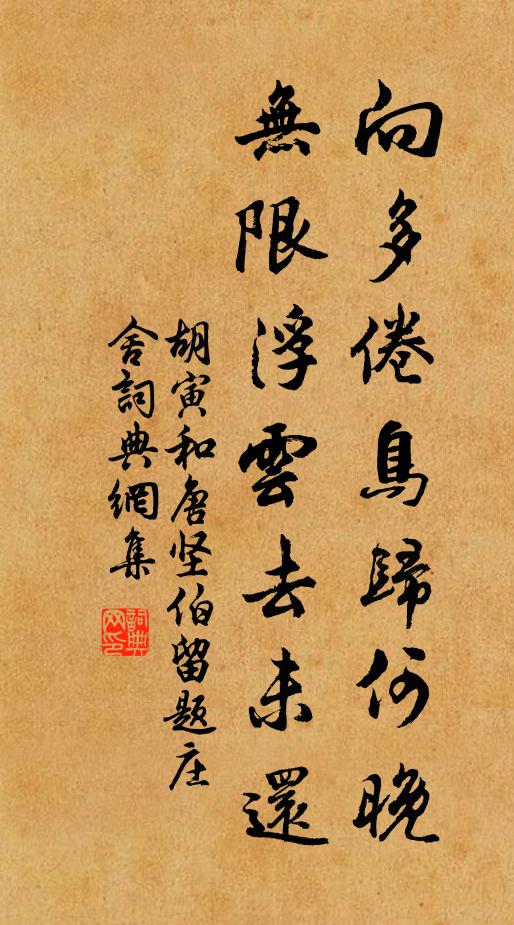 向多倦鳥歸何晚
無限浮雲去未還
胡寅和唐坚伯留题庄
舍詞典網集
詞典
网印